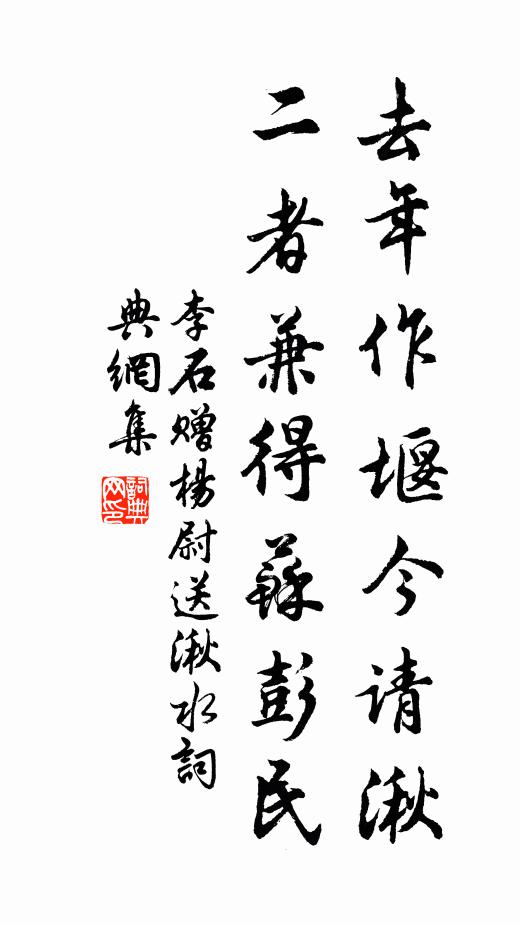 去年作堰今请湫
二者兼得蘇彭民
李石赠楊尉送湫水詞
典網集
詞典网印